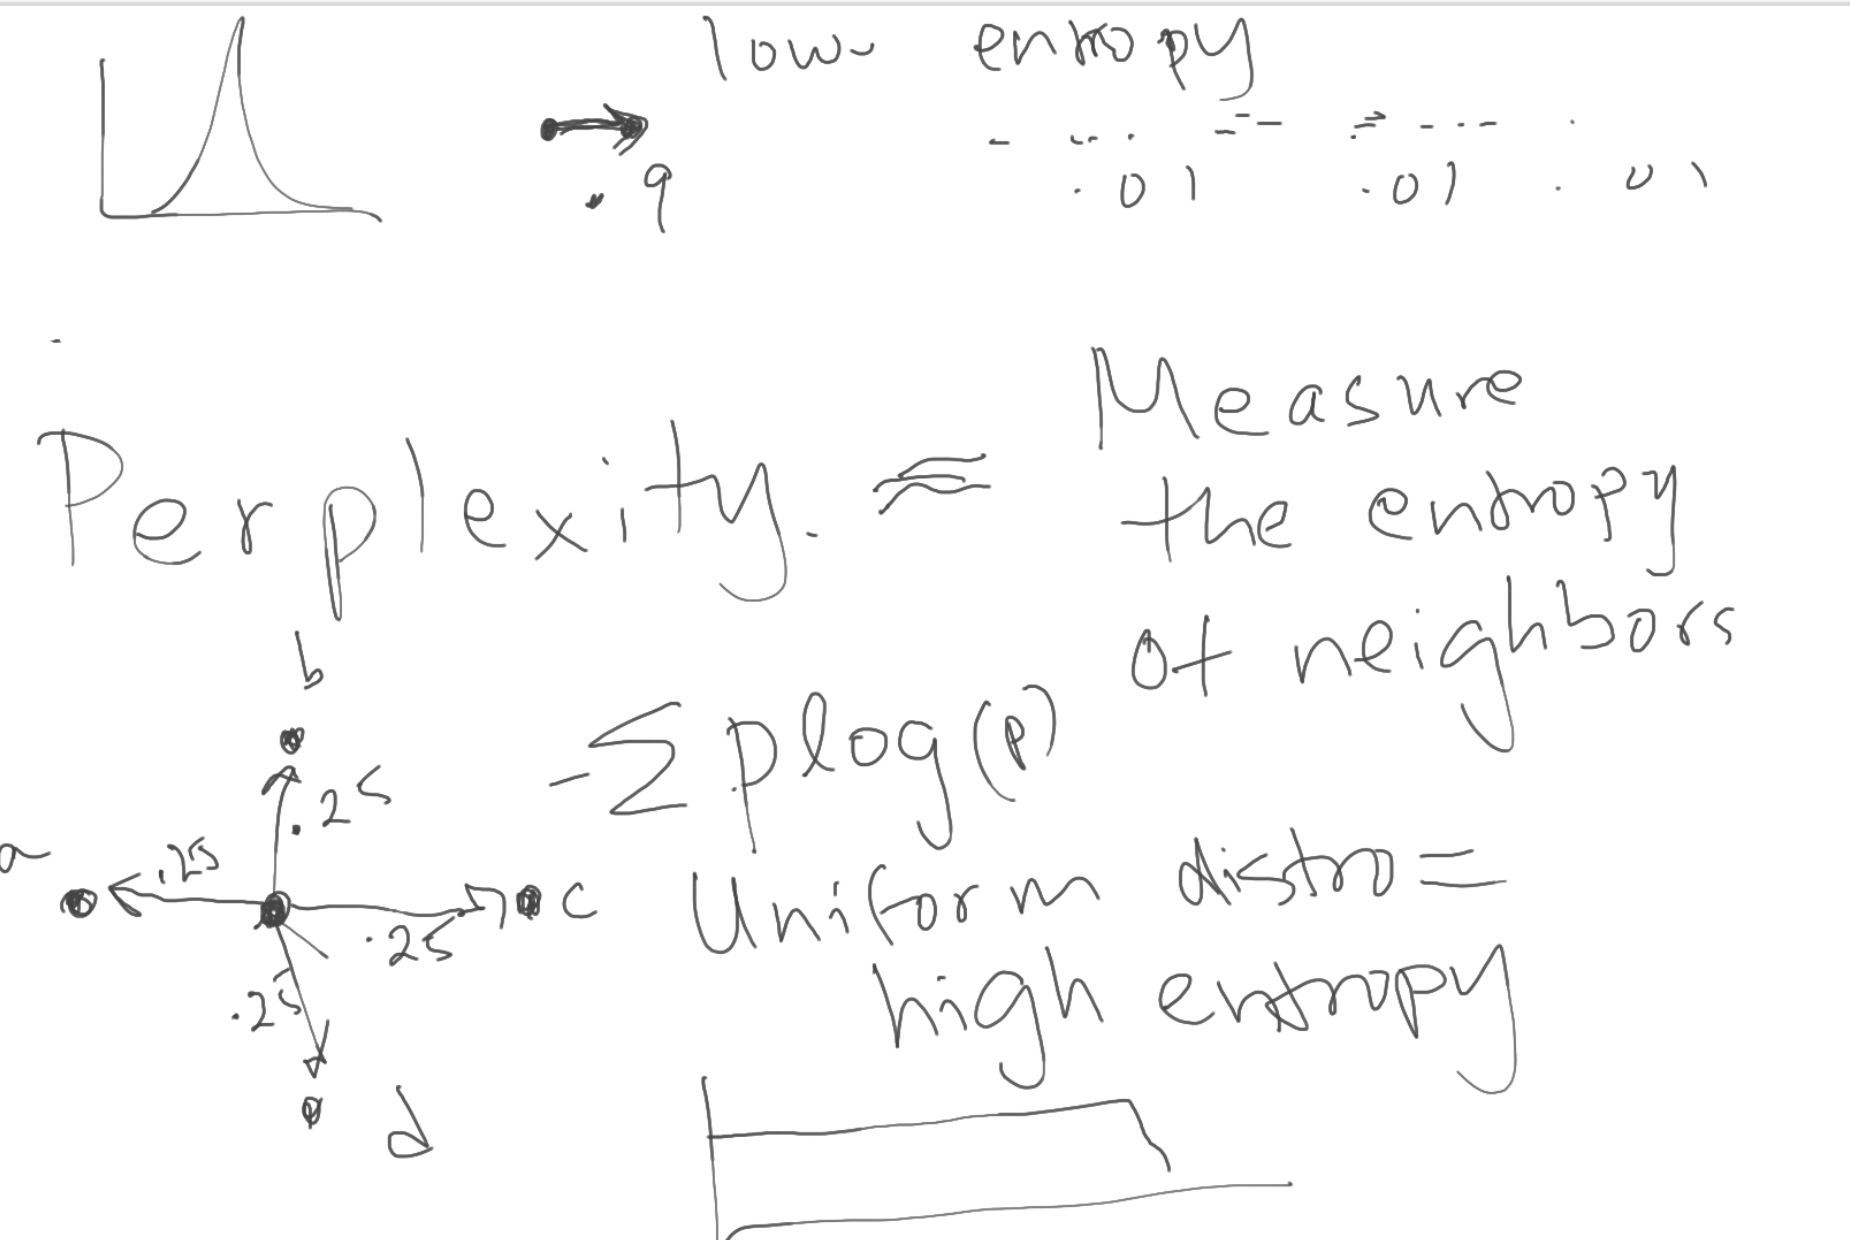 low entropy
.9 .01 .01 .01
Perplexity. ≈ Measure
the entropy
of neighbors
b
-Σ plog(p)
.25
a .25 c
.25
Uniform distro =
high entropy
.25
d